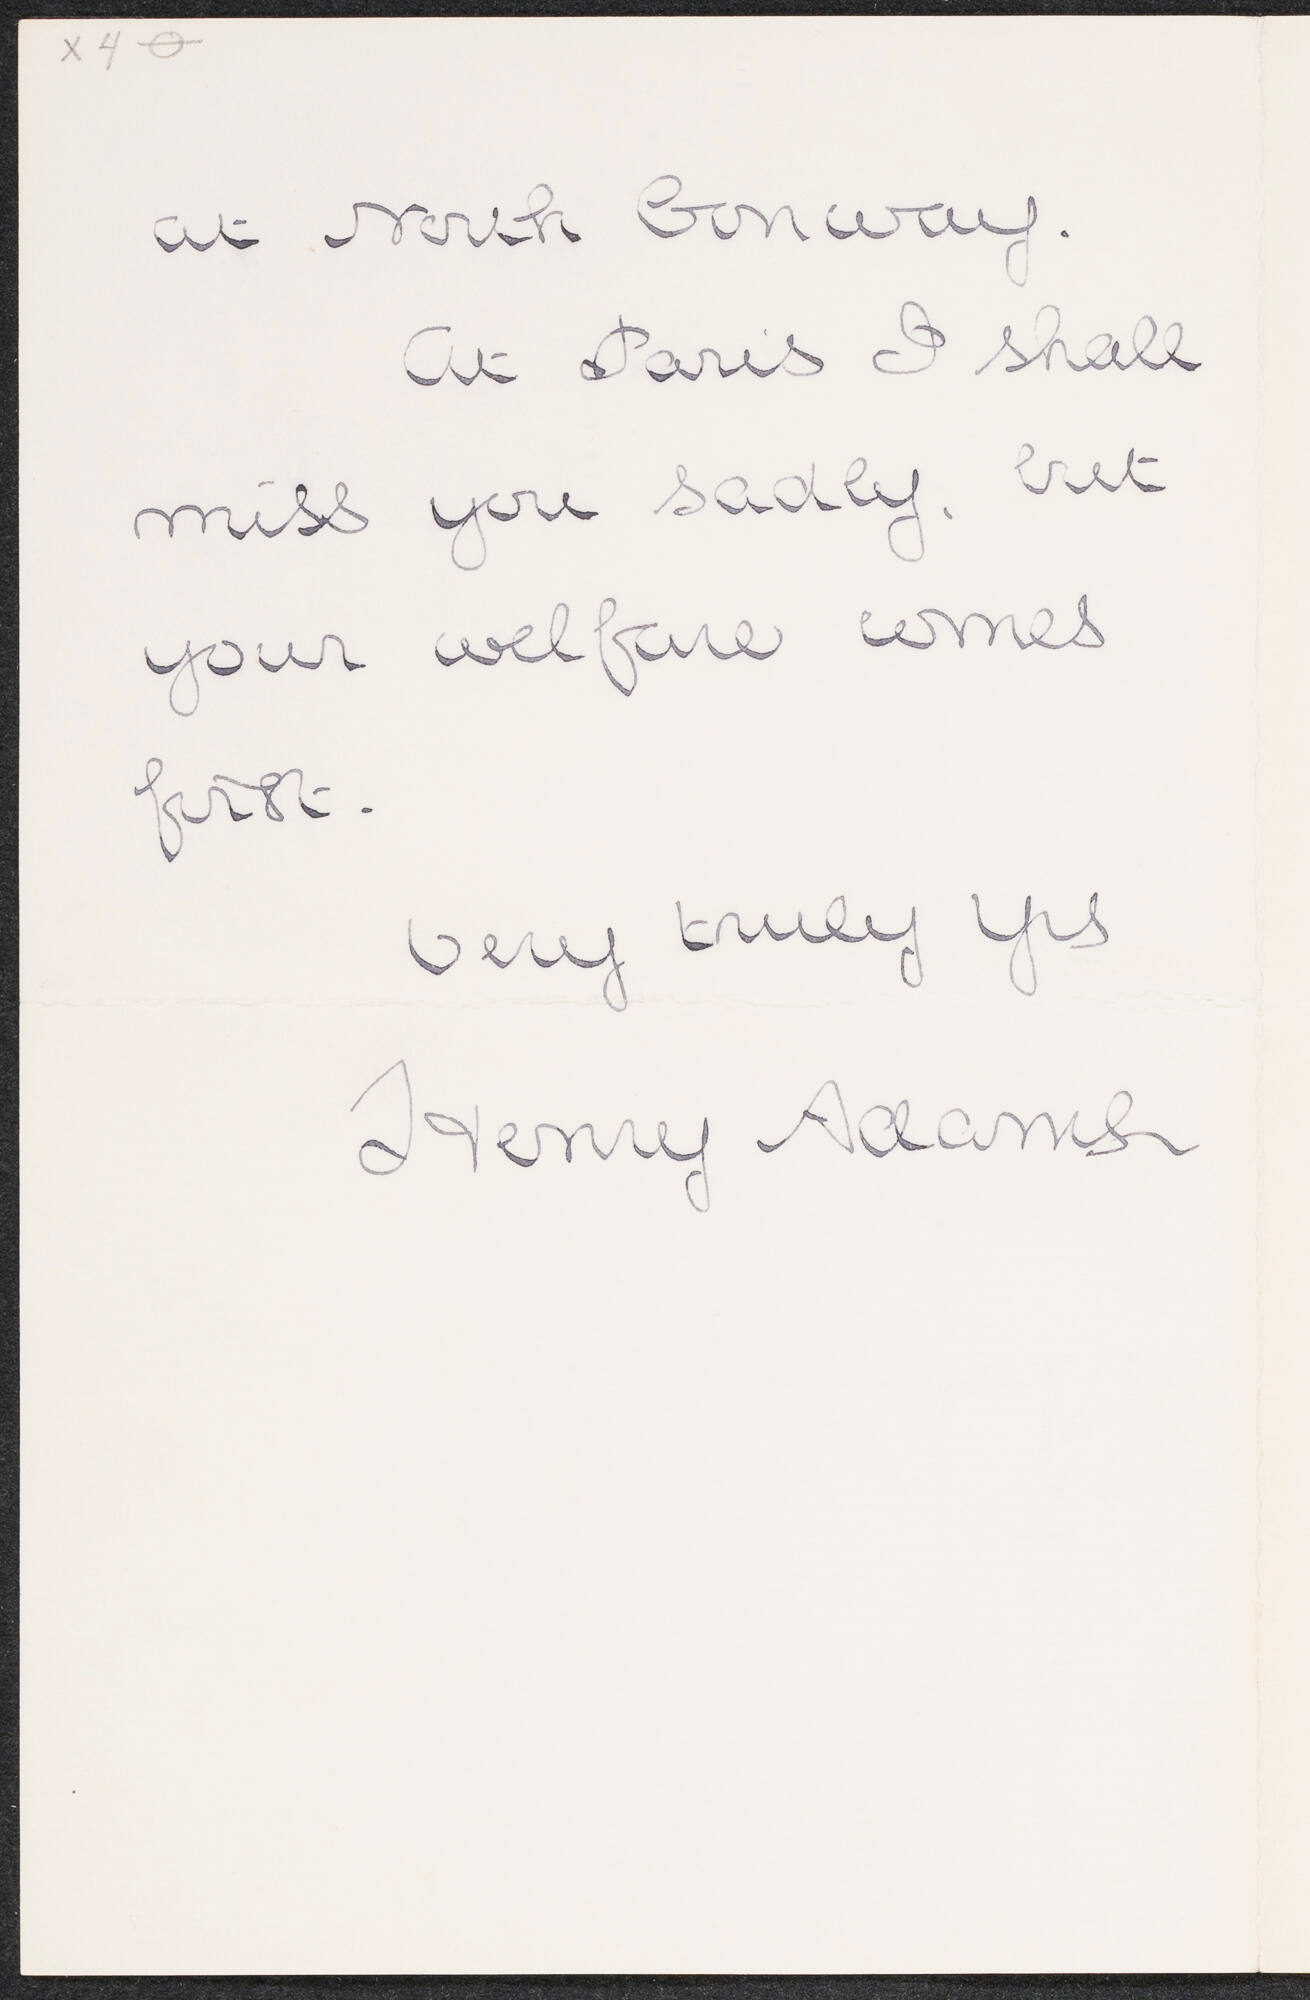 x 4
at North Conway.
At Paris I shall
miss you sadly, but
your welfare comes
first.
Very truly Yrs
Henry Adams